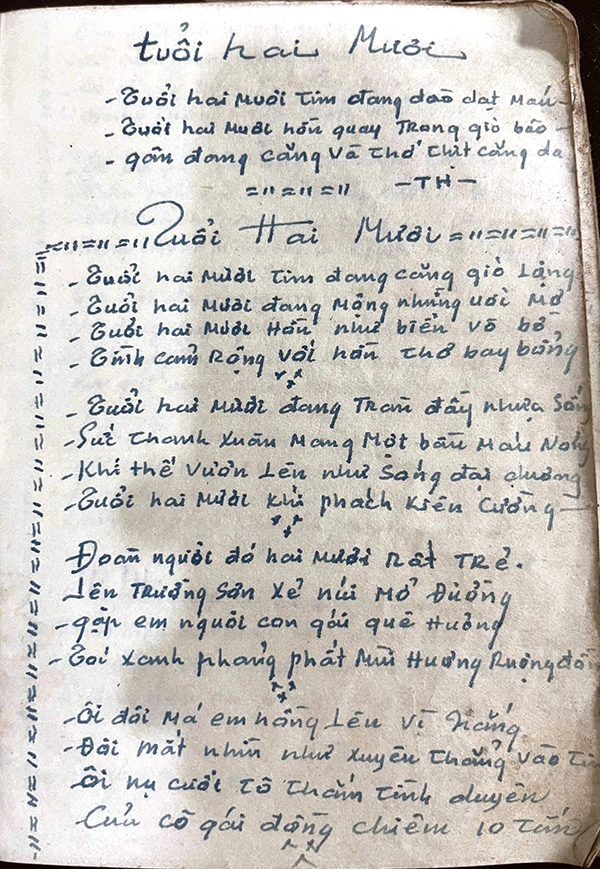 tuổi hai Mươi
- Tuổi hai Mươi Tim đang dào dạt Máu -
- Tuổi hai Mươi hồn quay Trong gió bão -
- gân đang căng và thớ thịt căng da
= " = " = " - TH -
= " = " = " Tuổi Hai Mươi = " = " = " = "
- Tuổi hai Mươi Tim đang căng gió Lộng
- Tuổi hai Mươi đang Mộng những ước Mơ
- Tuổi hai Mươi Hồn như biển vô bờ
- Tình cảm Rộng với hồn thơ bay bổng
- Tuổi hai Mươi đang Tràn đầy nhựa Sống
- Sức thanh Xuân Mang Một bầu Máu Nóng
- Khí thế Vươn Lên như Sóng đại dương
- Tuổi hai Mươi Khí phách Kiên Cường -
Đoàn người đó hai Mươi Rất TRẺ.
Lên TRường Sơn Xẻ núi Mở Đường
- gặp em người con gái quê Hương
- Tóc xanh phảng phất Mùi Hương Ruộng đồng
- Ôi đôi Má em hồng Lên Vì Nắng
- Đôi Mắt nhìn như xuyên thẳng vào
- Ôi nụ cười tô Thắm tình duyên
- Của cô gái đồng chiêm 10 tấn